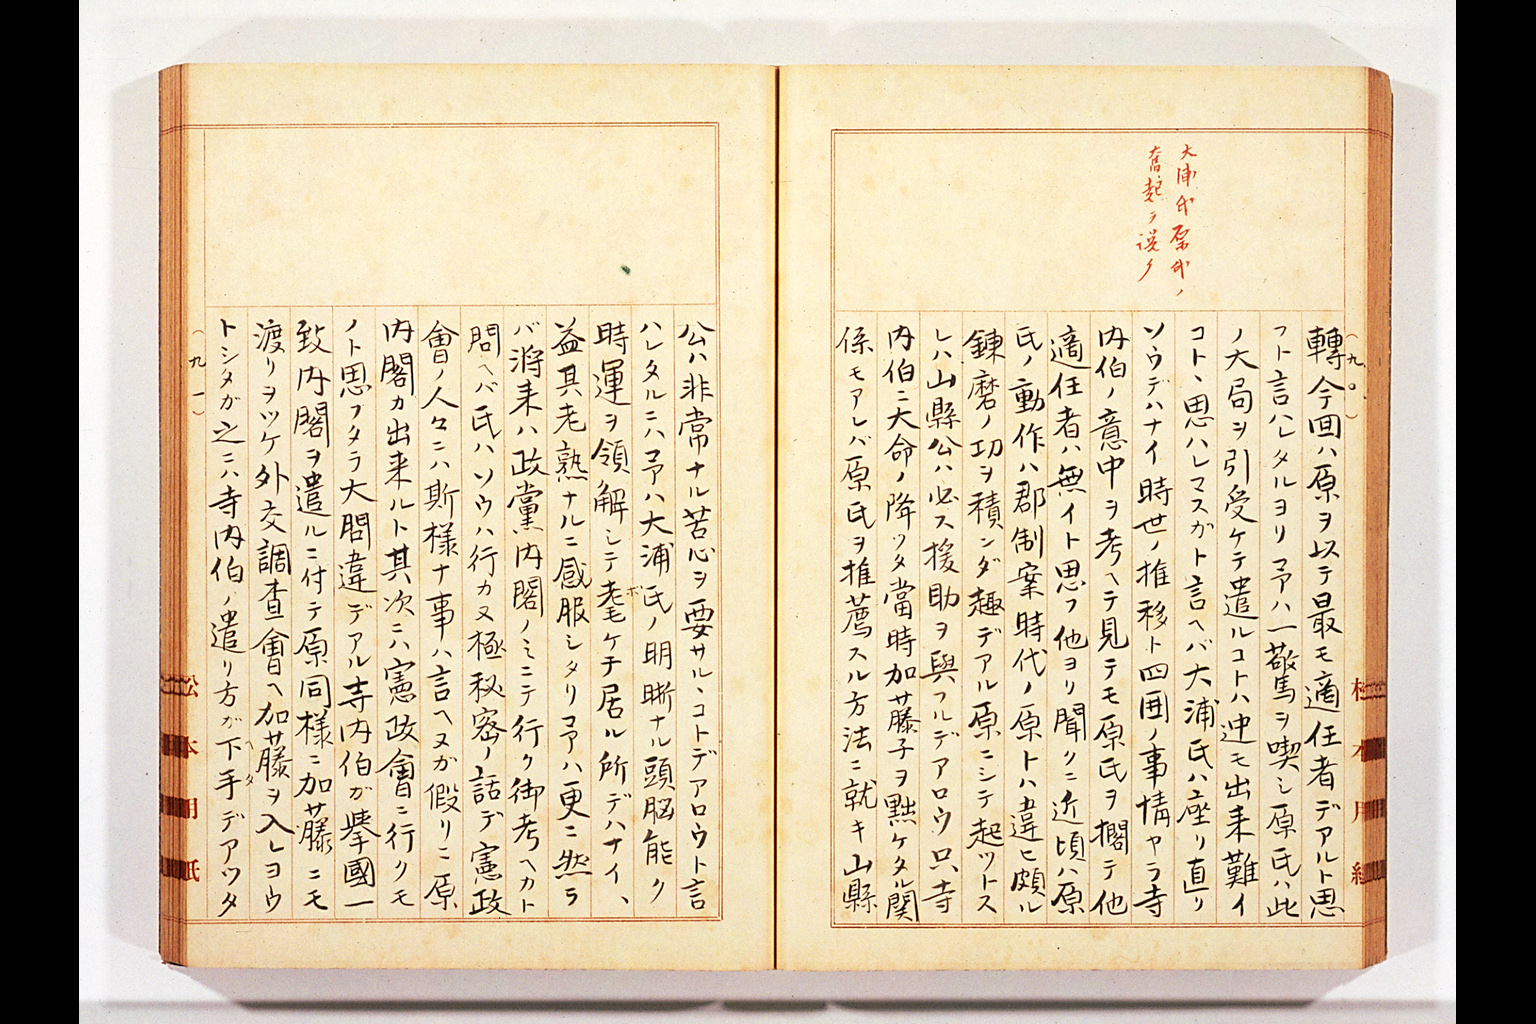 大浦氏原氏ノ
奮起ヲ説ク
(九〇)
轉今回ハ原ヲ以テ最モ適任者デアルト思
フト言ハレタルヨリ予ハ一驚ヲ喫シ原氏ハ此
ノ大局ヲ引受ケテ遣ルコトハ迚モ出来難イ
コトヽ思ハレマスガト言ヘバ大浦氏ハ座リ直リ
ソウデハナイ時世ノ推移ト四囲ノ事情ヤラ寺
内伯ノ意中ヲ考ヘテ見テモ原氏ヲ擱テ他
適任者ハ無イト思フ他ヨリ聞クニ近頃ハ原
氏ノ動作ハ郡制案時代ノ原トハ違ヒ頗ル
錬磨ノ功ヲ積ンダ趣デアル原ニシテ起ツトス
レハ山縣公ハ必ス援助ヲ與フルデアロウ只寺
内伯ニ大命ノ降ツタ當時加藤子ヲ黜ケタル関
係モアレバ原氏ヲ推薦スル方法ニ就キ山縣
公ハ非常ナル苦心ヲ要サルヽコトデアロウト言
ハレタルニハ予ハ大浦氏ノ明晰ナル頭脳能ク
時運ヲ領解シテ耄ボケチ居ル所デハナイ、
益其老熟ナルニ感服シタリ予ハ更ニ然ラ
バ将来ハ政黨内閣ノミニテ行ク御考ヘカト
問ヘバ氏ハソウハ行カヌ極秘密ノ話デ憲政
會ノ人々ニハ斯様ナ事ハ言ヘヌガ假リニ原
内閣カ出来ルト其次ニハ憲政會ニ行クモ
ノト思フタラ大間違デアル寺内伯ガ挙國一
致内閣ヲ遣ルニ付テ原同様ニ加藤ニモ
渡リヲツケ外交調査會ヘ加藤ヲ入レヨウ
トシタガ之ニハ寺内伯ノ遣リ方ガ下手ヘタデアツタ
(九一)
松本用紙